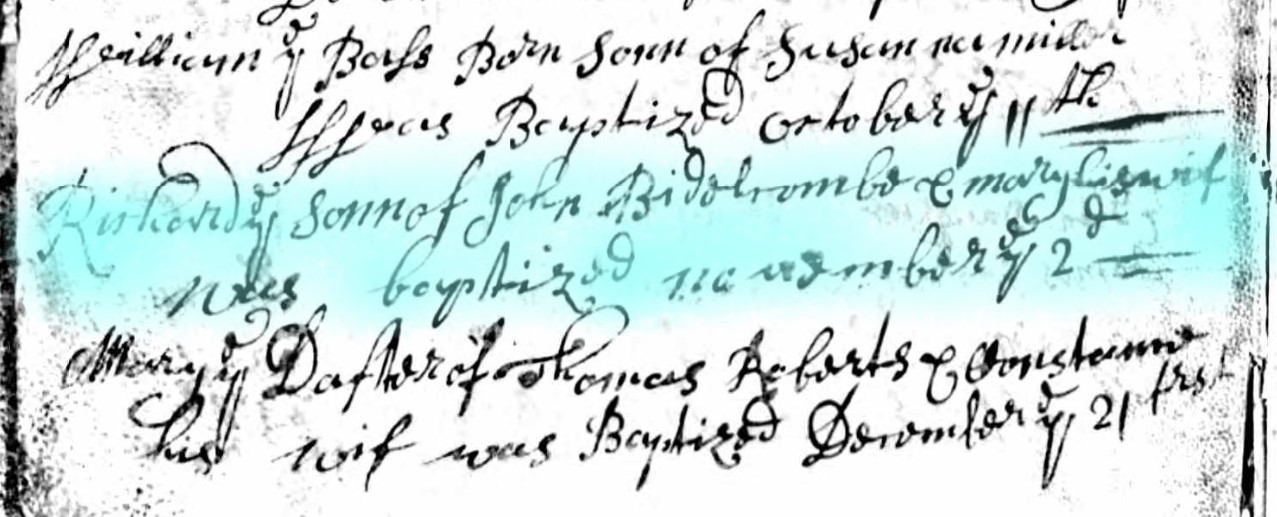 William yᵉ Bass Born Sonn of Susanna millor
Was Baptized October yᵉ 11th
Richard yᵉ Sonn of John Bidelcombe & mary his wif
was baptized november yᵉ 2d
Mary yᵉ Dafter of Thomas Roberts & Constanne
his wif was Baptized December yᵉ 21 frst